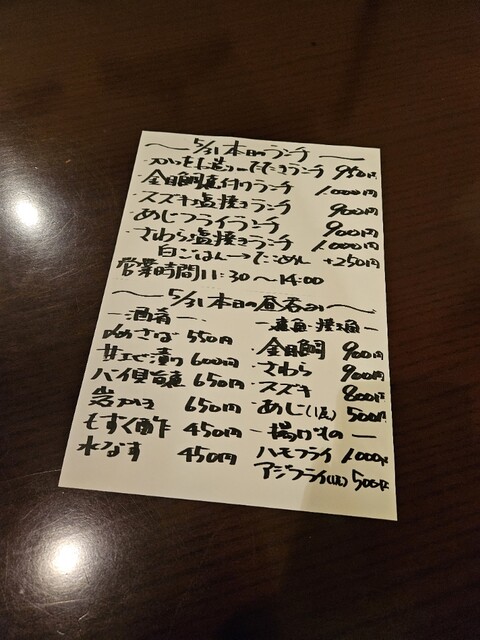 〜 5/31 本日のランチ 〜
・かつをお造り or たたきランチ 950円
・金目鯛煮付けランチ 1,000円
・スズキ塩焼きランチ 900円
・あじフライランチ 900円
・さわら塩焼きランチ 1,000円
白ごはん→たこめし +250円
営業時間 11:30〜14:00
〜 5/31 本日の昼呑み 〜
― 酒肴 ―
〆さば 550円
甘エビ漬け 600円
バイ貝旨煮 650円
岩ガキ 650円
もずく酢 450円
水なす 450円
― 煮魚・焼き魚 ―
・金目鯛 900円
・さわら 900円
・スズキ 800円
・あじ(1尾) 500円
― 揚げもの ―
ハモフライ 1,000円
アジフライ 500円